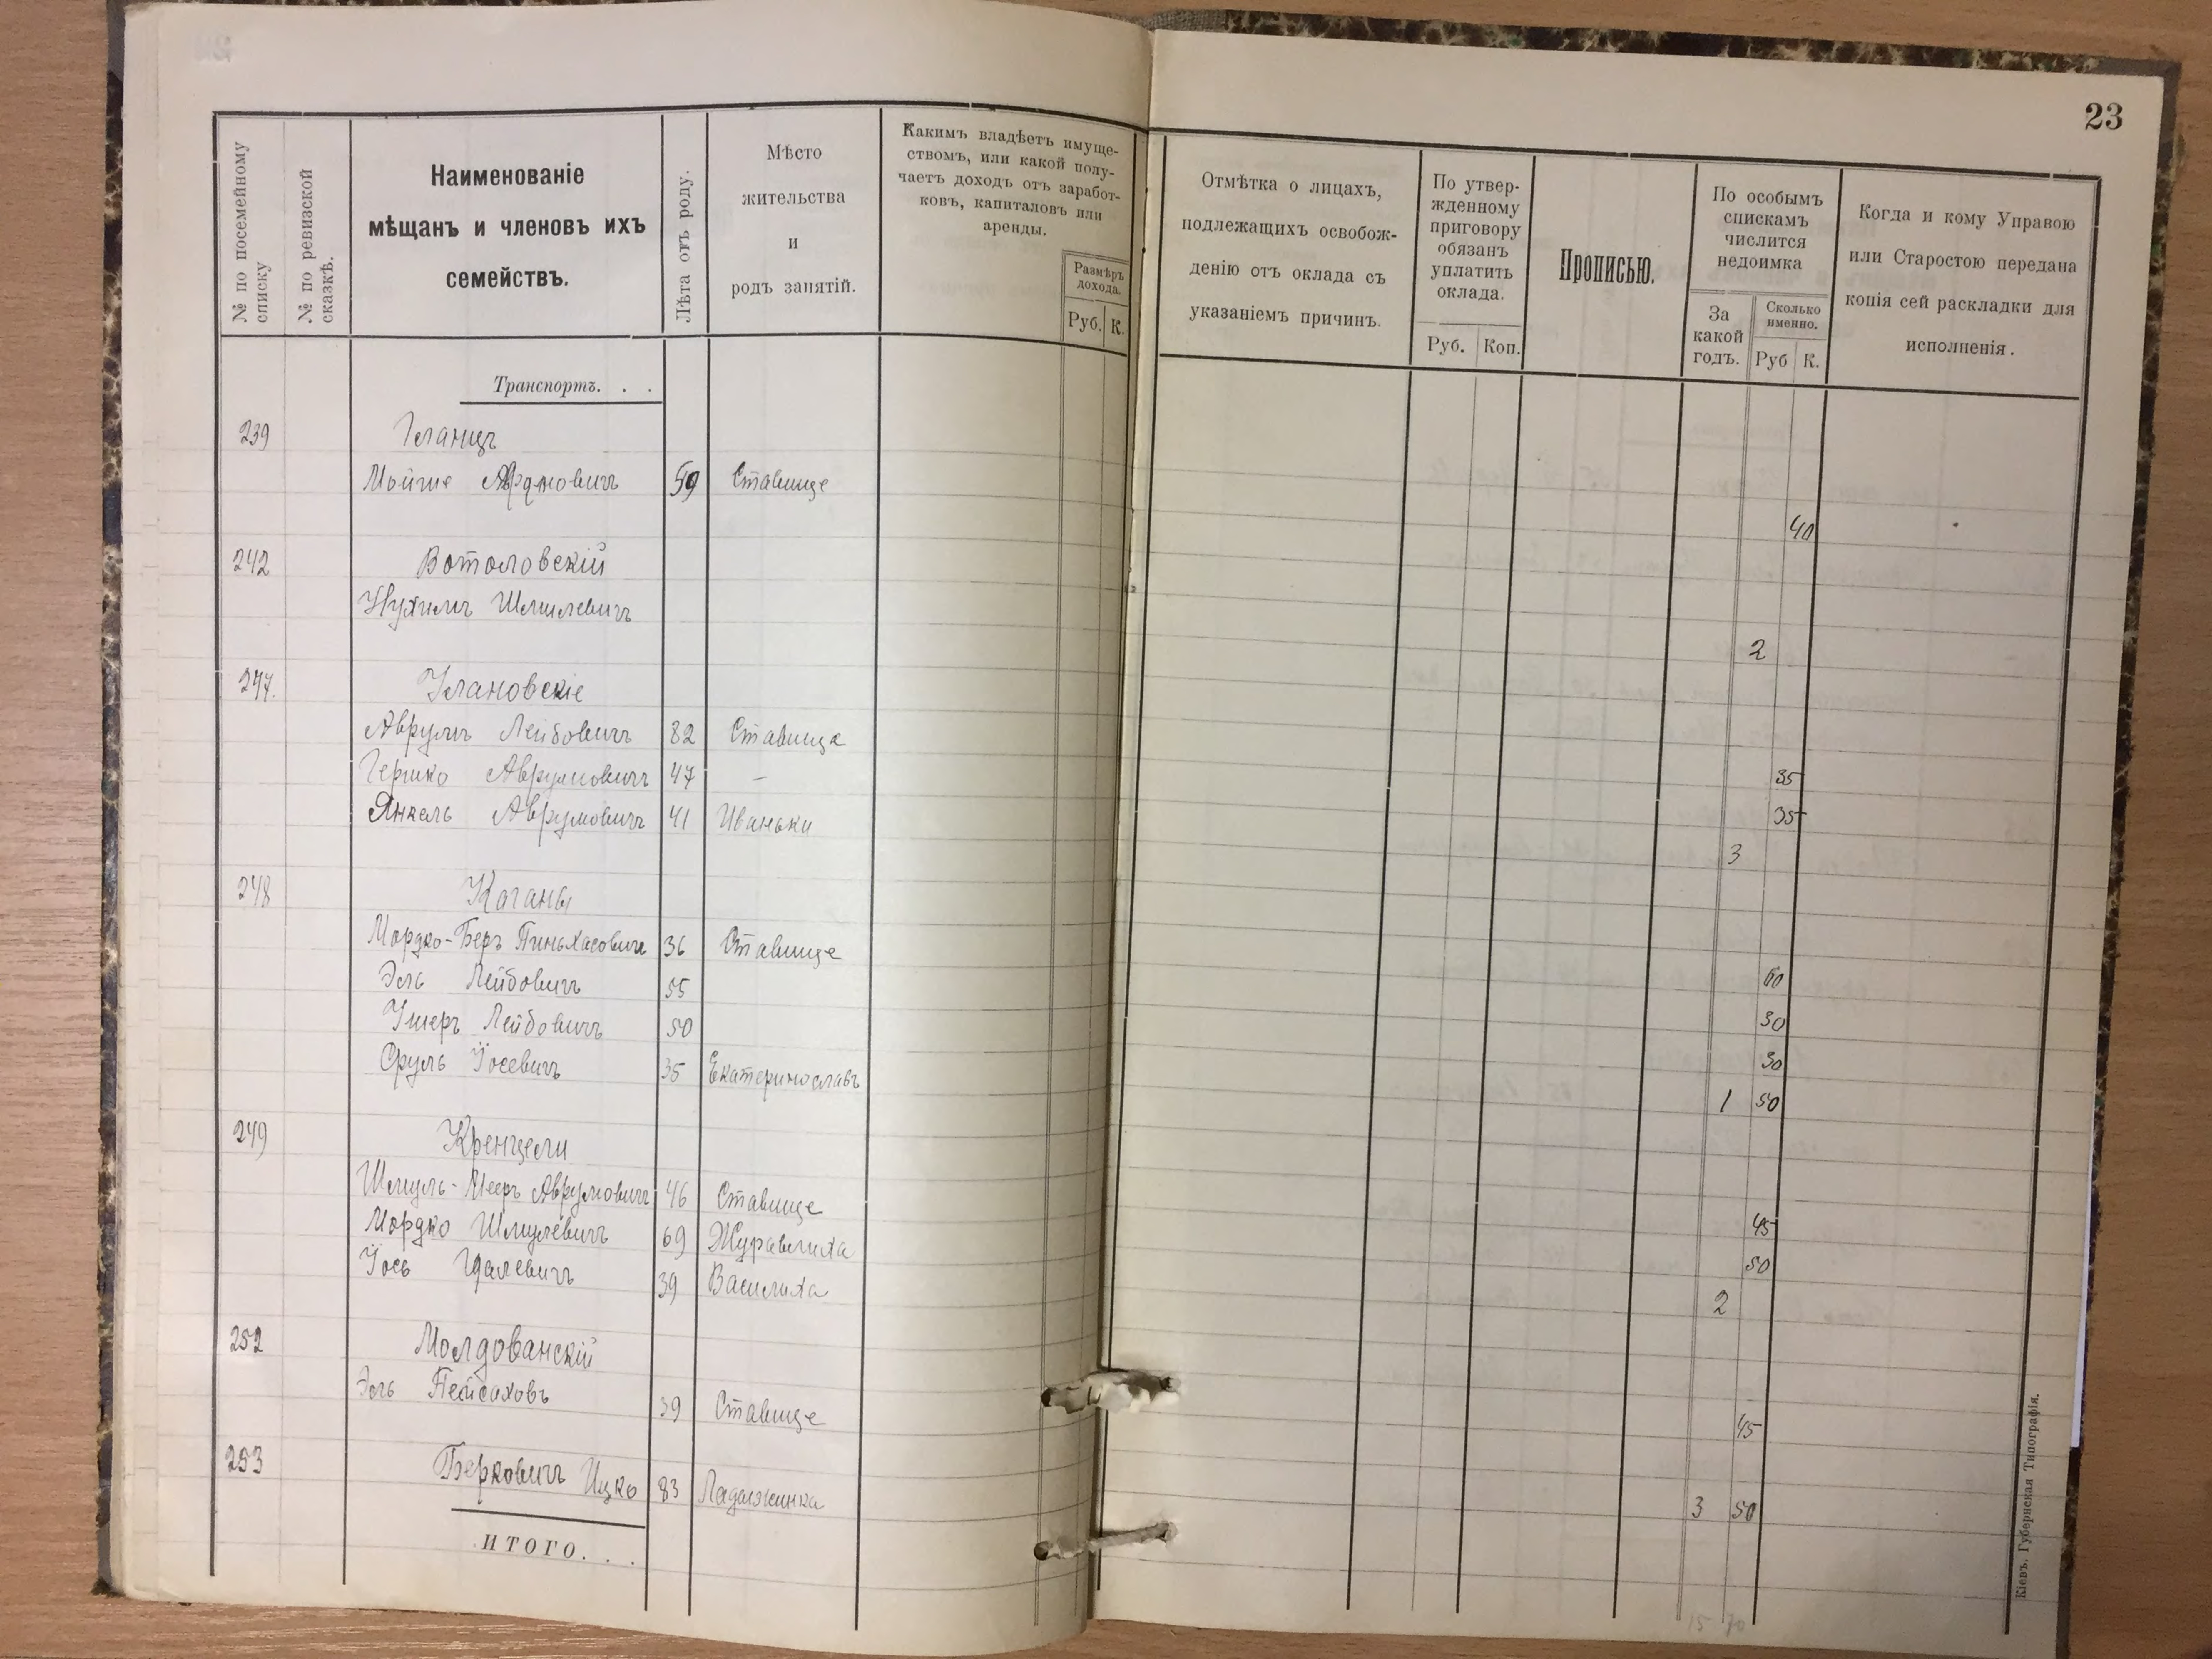 23
№ по посемейному
списку
№ по ревизской
сказкѣ.
Наименованіе
мѣщанъ и членовъ ихъ
семействъ.
Лѣта отъ роду.
Мѣсто
жительства
и
родъ занятій.
Какимъ владѣетъ имуще-
ствомъ, или какой полу-
чаетъ доходъ отъ заработ-
ковъ, капиталовъ или
аренды.
Размѣръ
дохода.
Руб. К.
Отмѣтка о лицахъ,
подлежащихъ освобож-
денію отъ оклада съ
указаніемъ причинъ.
По утвер-
жденному
приговору
обязанъ
уплатить
оклада.
Руб. Коп.
Прописью.
По особымъ
спискамъ
числится
недоимка
За
какой
годъ.
Сколько
именно.
Руб К.
Когда и кому Управою
или Старостою передана
копія сей раскладки для
исполненія.
Транспортъ. . .
239 Гланцъ
Мойше 59 Ставище
40
242 Вотоловскій
Нухимъ Шмилевичъ
2
247. Улановскіе
Аврумъ Лейбовичъ 82 Ставище
Гершко Аврумовичъ 47 — 35
Янкель Аврумовичъ 41 Иваньки 35
3
248 Каганы
Мордко-Беръ Пиньхасовичъ 36 Ставище
Эль Лейбовичъ 55 60
Ушеръ Лейбовичъ 50 30
Сруль Іосевичъ 35 Екатеринославъ 30
1 50
249 Кренцели
Шмуль-Мееръ Аврумовичъ 46 Ставище
Мордко Шмулевичъ 69 Журавлиха 45
Іось Гдалевичъ 39 Василиха 50
2
252 Молдованскій
Эль Пейсаховъ 39 Ставище
45
253 Берковичъ Ицко 83 Ладыжинка
3 50
ИТОГО. . .
15 70
Кіевъ, Губернская Типографія.